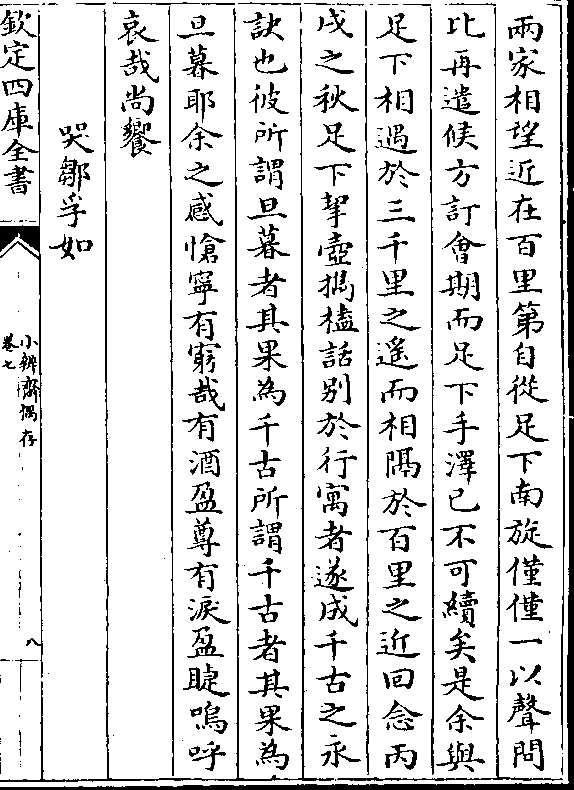 兩家相望近在百里第自從足下南旋僅僅一以聲問
比再遣候方訂會期而足下手澤已不可續矣是余與
足下相遇於三千里之遙而相隔於百里之近回念丙
戌之秋足下挈壺攜榼話別於行寓者遂成千古之永
訣也彼所謂旦暮者其果為千古所謂千古者其果為
旦暮耶余之感愴寧有窮哉有酒盈尊有淚盈睫嗚呼
哀哉尚饗
哭鄒孚如
欽定四庫全書
小辨齋偶存
卷七
八